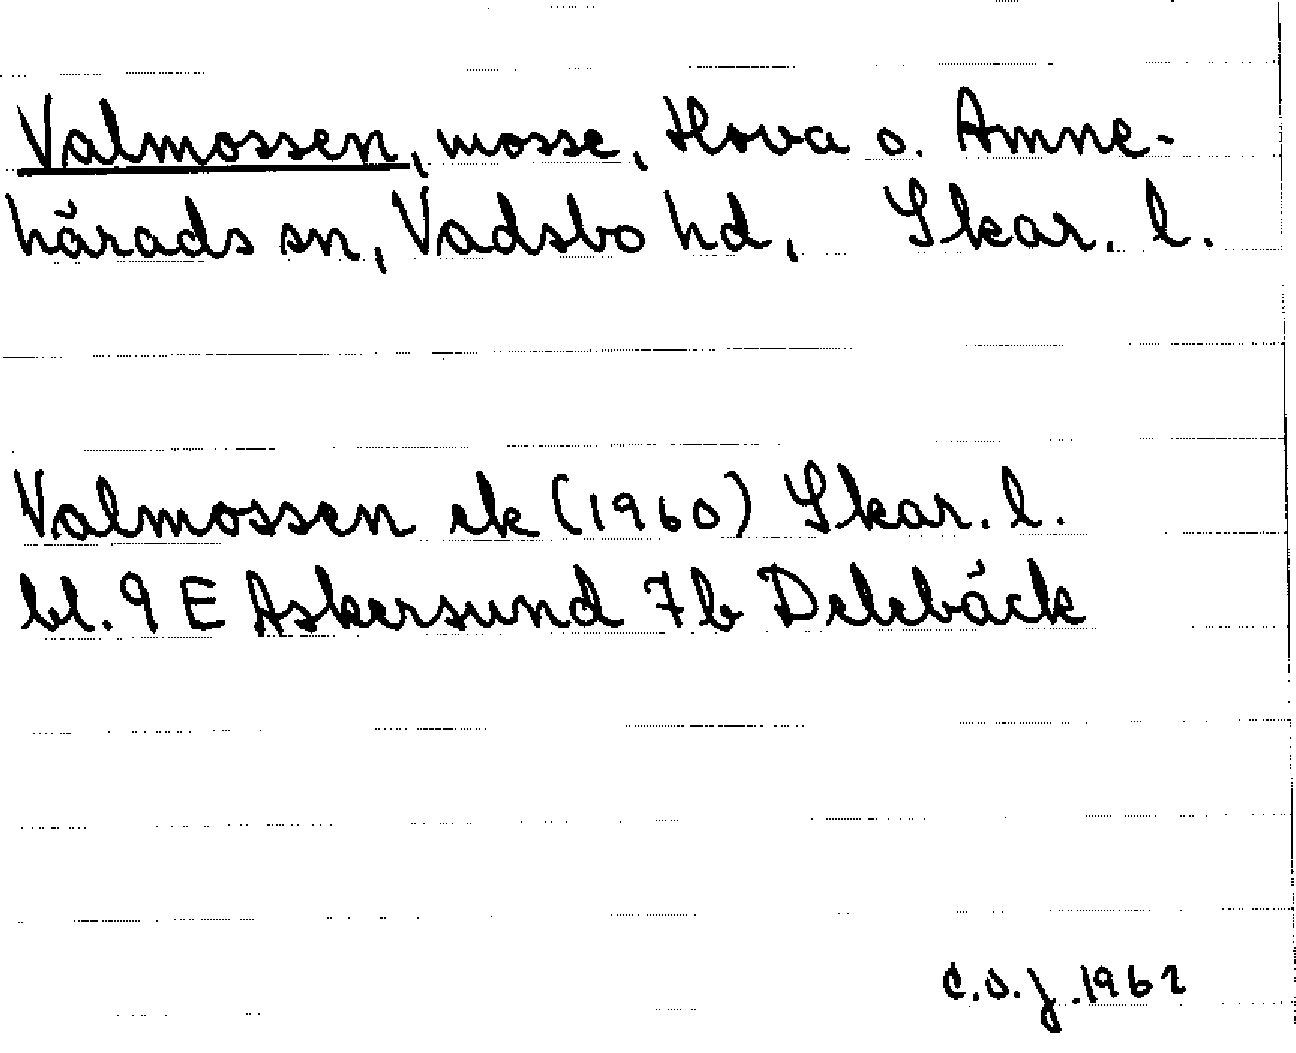 Valmossen, mosse, Hova o. Amne-
härads sn, Vadsbo hd, Skar. l.
Valmossen ek (1960) Skar. l.
bl. 9 E Askersund 7b Delebäck
C.S.J. 1962